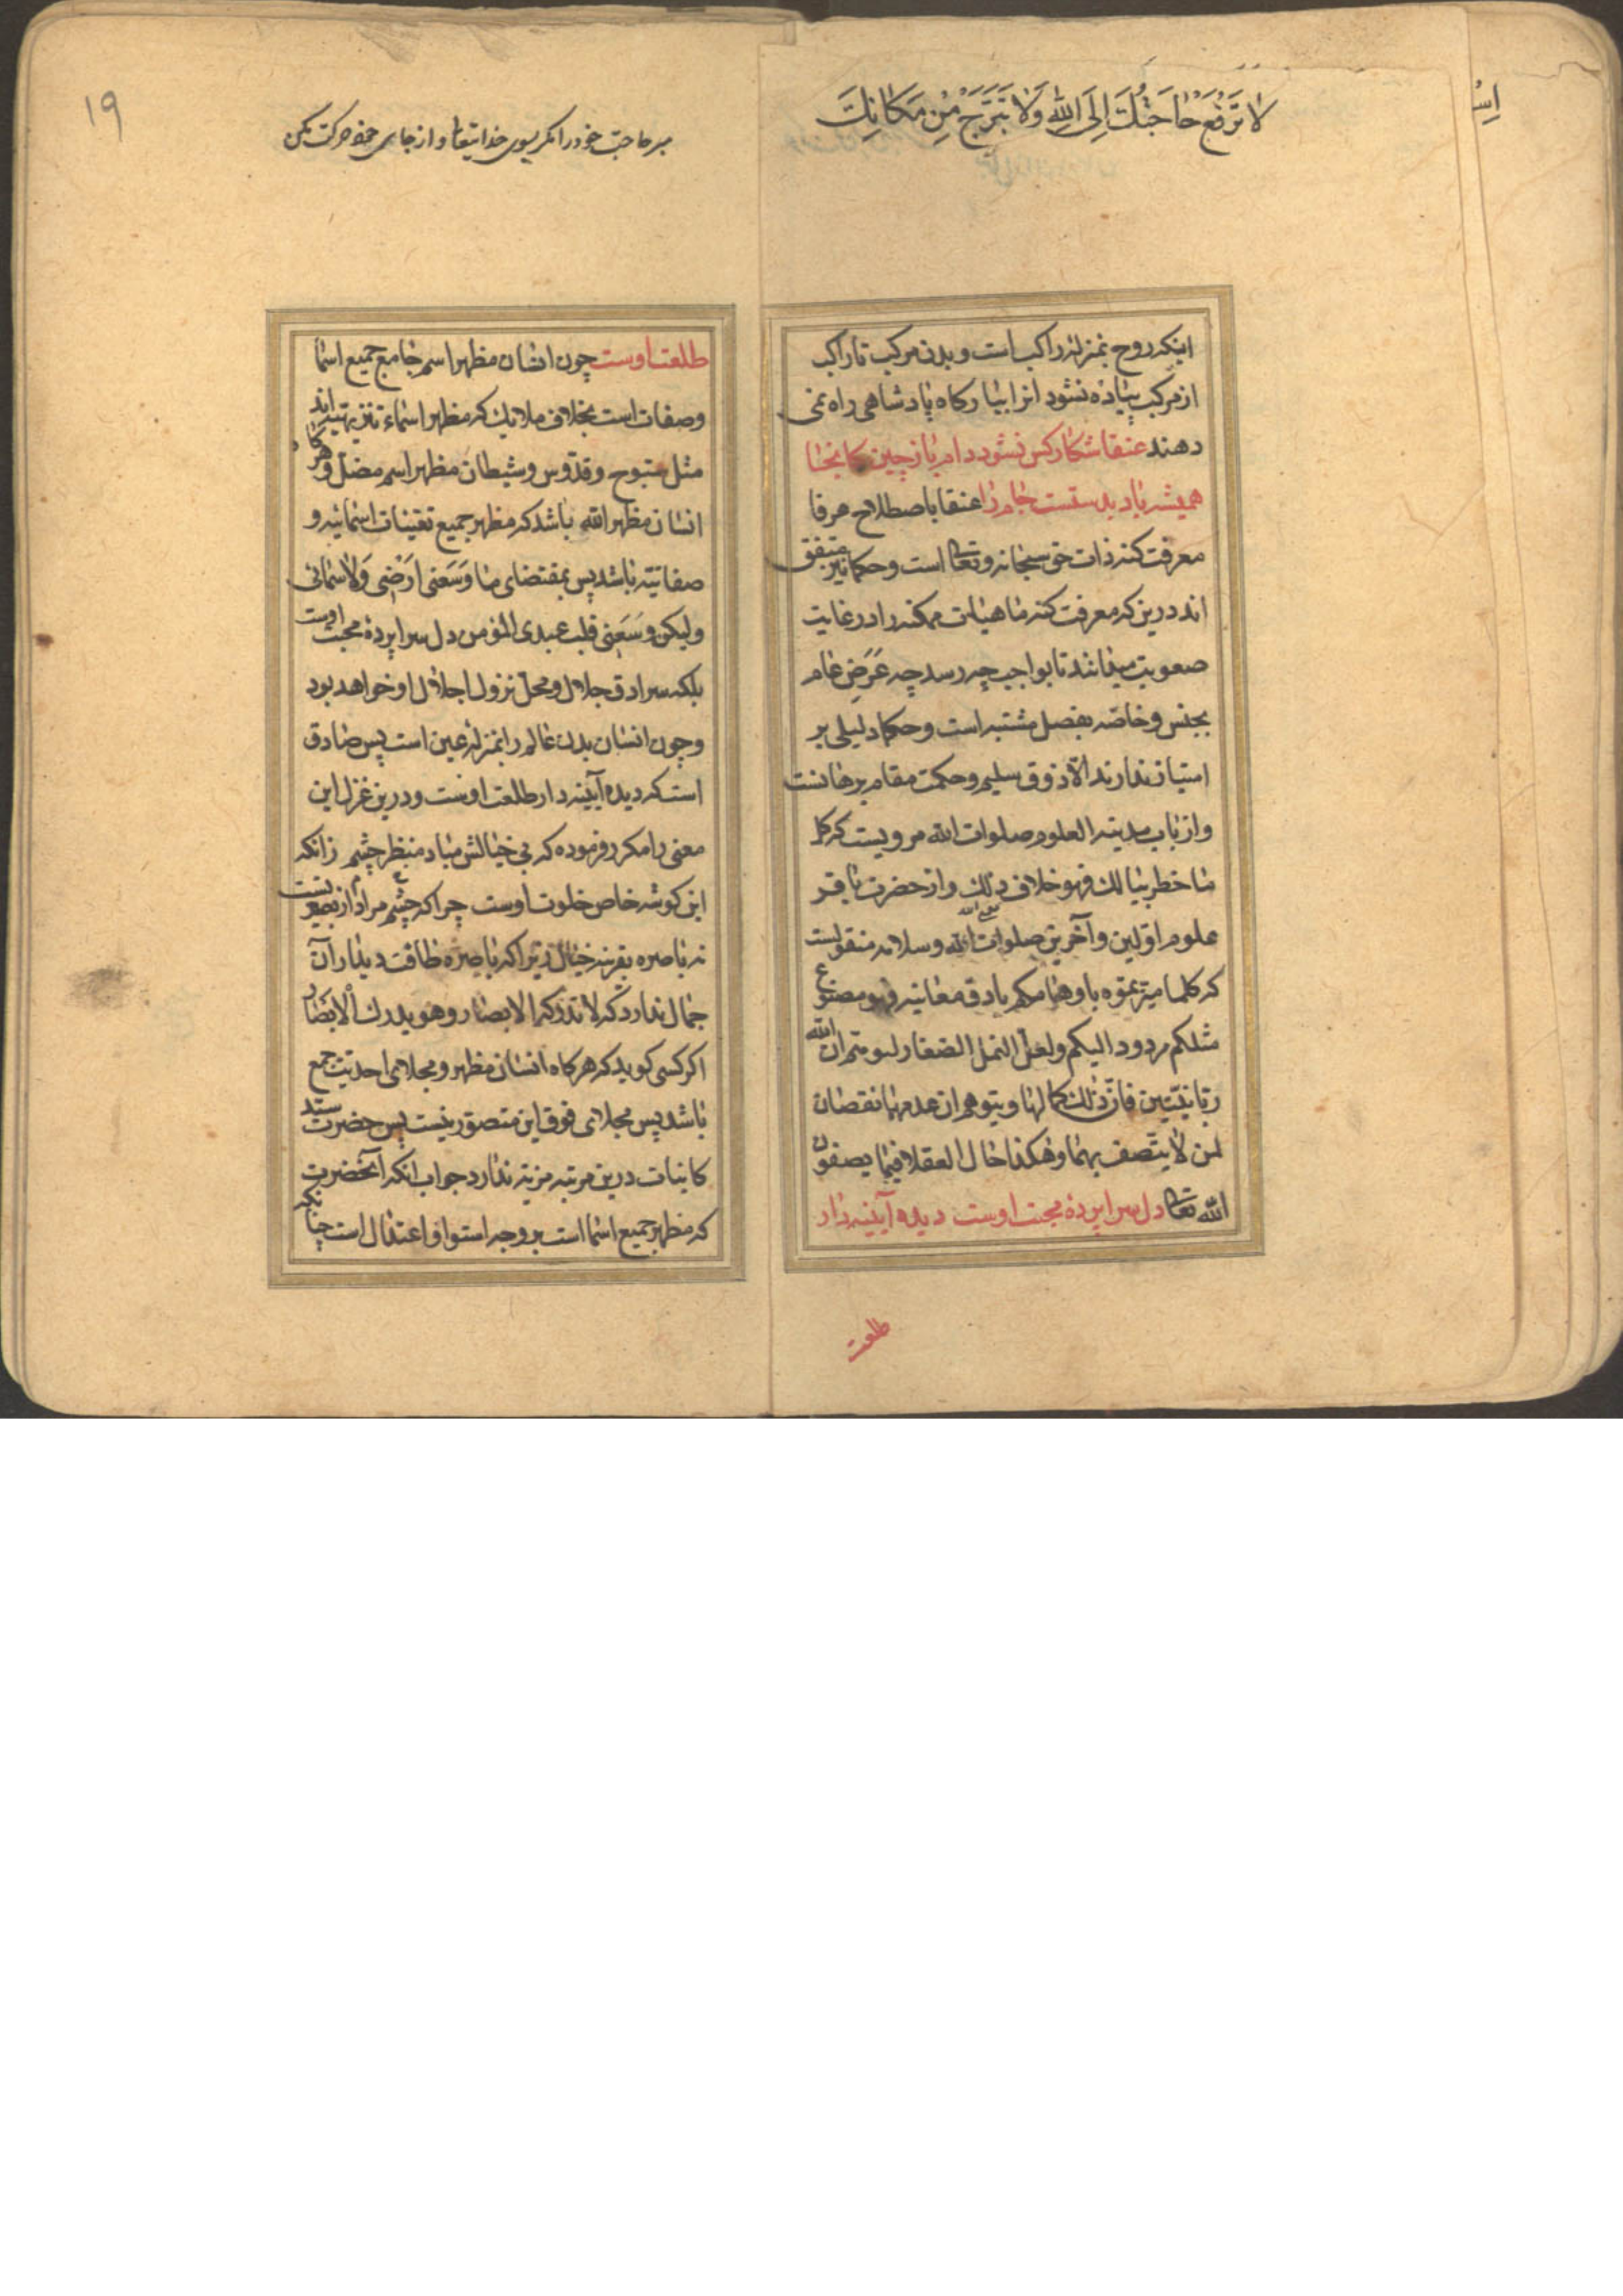 لا ترفع حاجتك الی الله ولا تبرح من مکانک
اینکه روح بمنزلهٔ راکب است و بدن مرکب تا راکب
از مرکب پیاده نشود انرا ببارکاه پادشاهی راه نمی
دهند عنقا شکار کس نشود دام بازچین کانجا
همیشه باد بدستست دام را عنقا باصطلاح عرفا
معرفت کنه ذات حق سبحانه وتعالی است وحکما نیز متفق
اند درین که معرفت کنه ماهیات ممکنه را در غایت
صعوبت میباشد تا بواجب چه رسد چه عَرَضِ عام
بجنس و خاصّه بفصل مشتبه است وحکما دلیلی بر
امتیاز ندارند الّا ذوق سلیم وحکمت مقام برهانست
واز باب مدینه العلوم صلوات الله مرویست که کل
ما خطر ببالک فهو خلاف ذلک واز حضرت باقر
علوم اوّلین وآخرین صلوات الله وسلامه منقولست
که کلما میّزتموه باوهامکم بادق معانیه فهو مصنوع
مثلکم مردود الیکم ولعلّ النمل الصغار لتوهّم ان الله
ربانیتین فانّ ذٰلک کمالها ویتوهم ان عدمهما نقصان
لمن لا یتّصف بهما وهکذا حال العقلا فیما یصفون
الله تعالی دل سراپردهٔ محبت اوست دیده آیینه دار
طلعت
۱۹
مبر حاجت خود را مکر بسوی خدایتعالی و از جای خود حرکت مکن
طلعت اوست چون انسان مظهر اسم جامع جمیع اسما
وصفات است بخلاف ملایک که مظهر اسماء تنزیهیّه اند
مثل سبّوح وقدّوس وشیطان مظهر اسم مضلّ وهرکاه
انسان مظهر الله باشد که مظهر جمیع تعینات اسمائیه و
صفاتیّه باشد پس بمقتضای ما وَسَعَنی اَرْضِی وَلا سَمائی
ولیکن وَسَعَنِی قلب عبدی المؤمن دل سراپردهٔ محبت اوست
بلکه سرادق جلال ومحلّ نزول اجلال او خواهد بود
وچون انسان بدن عالم را بمنزله عین است پس صادق
است که دیده آیینه دار طلعت اوست ودرین غزل این
معنی را مکرر فرموده که بی خیالش مباد منظر چشم زانکه
این کوشه خاص خلوت اوست چرا که چشم مراد از بصیرتست
نه باصره بقرینه خیال زیرا که باصره طاقت دیدار آن
جمال ندارد که لا تدرکه الابصار وهو یدرک الابصار
اکر کسی کوید که هرکاه انسان مظهر ومجلای احدیت جمع
باشد پس مجلای فوق این متصوّر نیست پس حضرت سیّد
کاینات درین مرتبه مزیّه ندارد جواب انکه آنحضرت
که مظهر جمیع اسما است بر وجه استوا و اعتدال است چنانکه